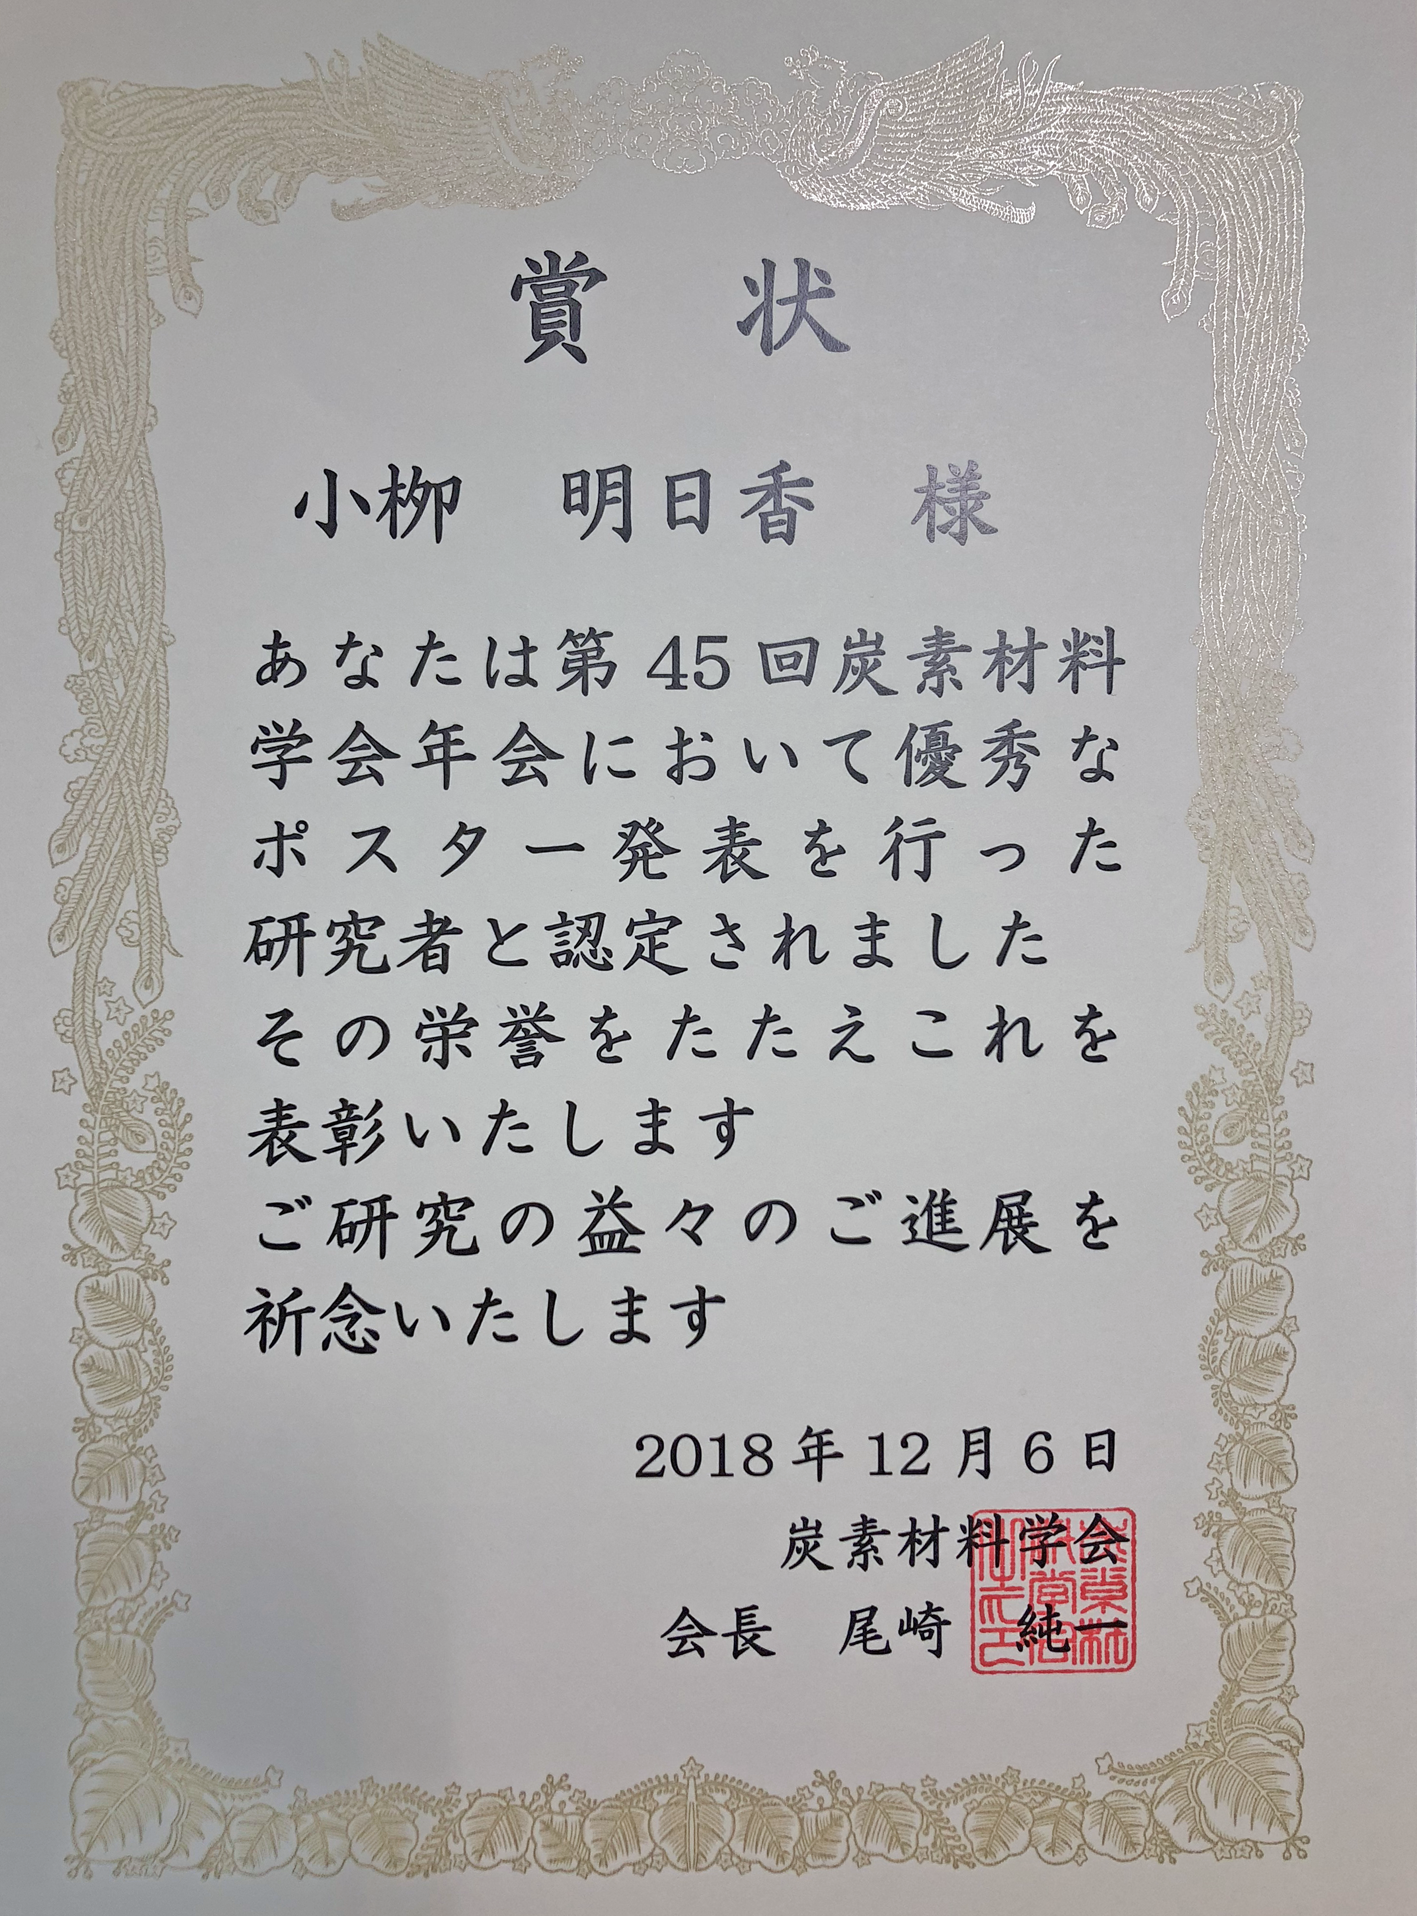 賞 状
小栁 明日香 様
あなたは第45回炭素材料
学会年会において優秀な
ポスター発表を行った
研究者と認定されました
その栄誉をたたえこれを
表彰いたします
ご研究の益々のご進展を
祈念いたします
2018年12月6日
炭素材料学会
会長 尾崎 純一